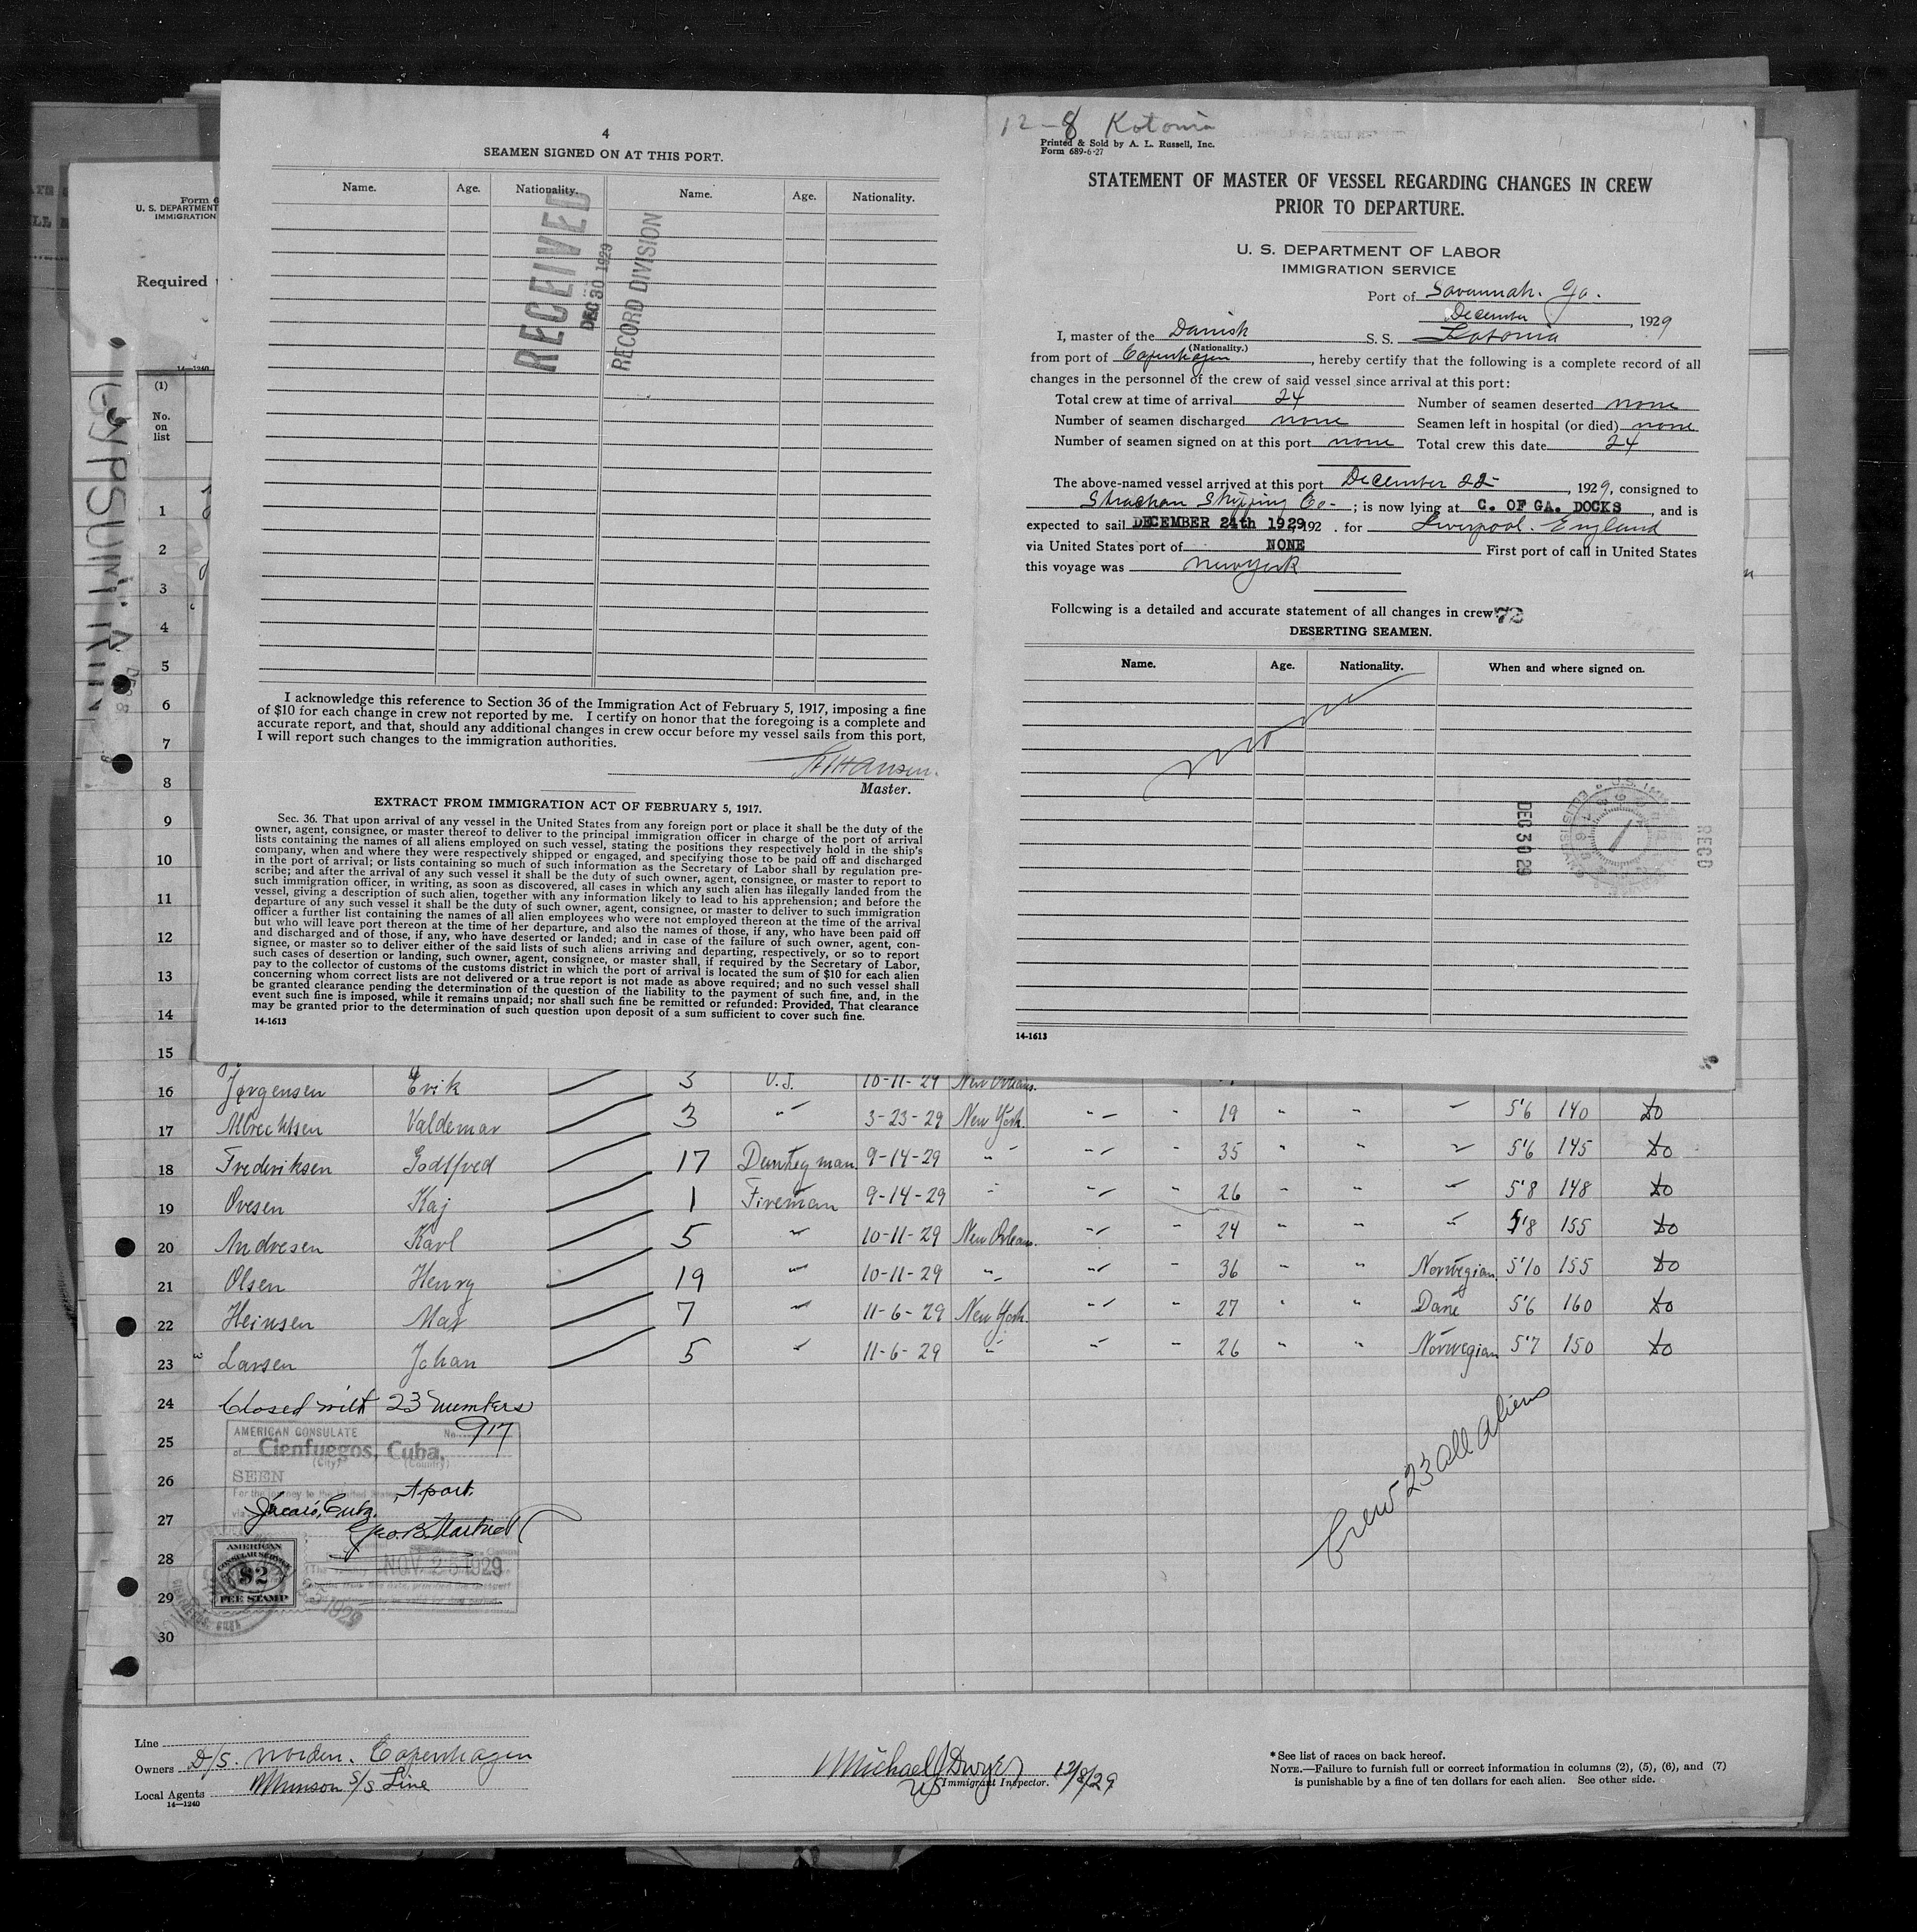 4
SEAMEN SIGNED ON AT THIS PORT.
Name. Age. Nationality. Name. Age. Nationality.
RECEIVED
DEC 30 1929
RECORD DIVISION
I acknowledge this reference to Section 36 of the Immigration Act of February 5, 1917, imposing a fine
of $10 for each change in crew not reported by me. I certify on honor that the foregoing is a complete and
accurate report, and that, should any additional changes in crew occur before my vessel sails from this port,
I will report such changes to the immigration authorities.
Hansen.
Master.
EXTRACT FROM IMMIGRATION ACT OF FEBRUARY 5, 1917.
Sec. 36. That upon arrival of any vessel in the United States from any foreign port or place it shall be the duty of the
owner, agent, consignee, or master thereof to deliver to the principal immigration officer in charge of the port of arrival
lists containing the names of all aliens employed on such vessel, stating the positions they respectively hold in the ship's
company, when and where they were respectively shipped or engaged, and specifying those to be paid off and discharged
in the port of arrival; or lists containing so much of such information as the Secretary of Labor shall by regulation pre-
scribe; and after the arrival of any such vessel it shall be the duty of such owner, agent, consignee, or master to report to
such immigration officer, in writing, as soon as discovered, all cases in which any such alien has illegally landed from the
vessel, giving a description of such alien, together with any information likely to lead to his apprehension; and before the
departure of any such vessel it shall be the duty of such owner, agent, consignee, or master to deliver to such immigration
officer a further list containing the names of all alien employees who were not employed thereon at the time of the arrival
but who will leave port thereon at the time of her departure, and also the names of those, if any, who have been paid off
and discharged and of those, if any, who have deserted or landed; and in case of the failure of such owner, agent, con-
signee, or master so to deliver either of the said lists of such aliens arriving and departing, respectively, or so to report
such cases of desertion or landing, such owner, agent, consignee, or master shall, if required by the Secretary of Labor,
pay to the collector of customs of the customs district in which the port of arrival is located the sum of $10 for each alien
concerning whom correct lists are not delivered or a true report is not made as above required; and no such vessel shall
be granted clearance pending the determination of the question of the liability to the payment of such fine, and, in the
event such fine is imposed, while it remains unpaid; nor shall such fine be remitted or refunded: Provided, That clearance
may be granted prior to the determination of such question upon deposit of a sum sufficient to cover such fine.
14-1613
12-8 Kotonia
Printed & Sold by A. L. Russell, Inc.
Form 689-6-27
STATEMENT OF MASTER OF VESSEL REGARDING CHANGES IN CREW
PRIOR TO DEPARTURE.
U. S. DEPARTMENT OF LABOR
IMMIGRATION SERVICE
Port of Savannah. Ga.
December, 1929
I, master of the Danish S. S. Kotonia
(Nationality.)
from port of Copenhagen, hereby certify that the following is a complete record of all
changes in the personnel of the crew of said vessel since arrival at this port:
Total crew at time of arrival 24 Number of seamen deserted none
Number of seamen discharged none Seamen left in hospital (or died) none
Number of seamen signed on at this port none Total crew this date 24
The above-named vessel arrived at this port December 22, 1929, consigned to
Strachan Shipping Co-; is now lying at C. OF GA. DOCKS, and is
expected to sail DECEMBER 24th 1929, 192 . for Liverpool. England
via United States port of NONE First port of call in United States
this voyage was New York
Following is a detailed and accurate statement of all changes in crew: 72
DESERTING SEAMEN.
Name. Age. Nationality. When and where signed on.
none
DEC 30 29
RECD
14-1613
Form 6
U. S. DEPARTMENT
IMMIGRATION
Required
14-1240
(1)
No.
on
list
GYPSUM
1
2
3
4
5
6
7
8
9
10
11
12
13
14
15
16 Jørgensen Erik 3 O.S. 10-11-29 New Orleans.
17 Albrechtsen Valdemar 3 " 3-23-29 New York. " " 19 " " " 5'6 140 do
18 Frederiksen Godtfred 17 Dunkeyman 9-14-29 " " " 35 " " " 5'6 145 do
19 Ovesen Kaj 1 Fireman 9-14-29 " " " 26 " " " 5'8 148 do
20 Andresen Karl 5 " 10-11-29 New Orleans. " " 24 " " " 5'8 155 do
21 Olsen Henry 19 " 10-11-29 " " " 36 " " Norwegian 5'10 155 do
22 Heinsen Max 7 " 11-6-29 New York. " " 27 " " Dane 5'6 160 do
23 Larsen Johan 5 " 11-6-29 " " " 26 " " Norwegian 5'7 150 do
24 Closed with 23 numbers
25
26
27
28
29
30
AMERICAN CONSULATE No. 917
of Cienfuegos, Cuba,
(City) (Country)
SEEN
For the journey to the United States
via Jucaro, Cuba.
NOV 25 1929
AMERICAN
CONSULAR SERVICE
$2
FEE STAMP
Crew 23 all aliens
Line
Owners D/S. Norden. Copenhagen
Local Agents Munson S/S Line
14-1240
Michael J Dwyer 12/8/29
US Immigrant Inspector.
*See list of races on back hereof.
NOTE.—Failure to furnish full or correct information in columns (2), (5), (6), and (7)
is punishable by a fine of ten dollars for each alien. See other side.